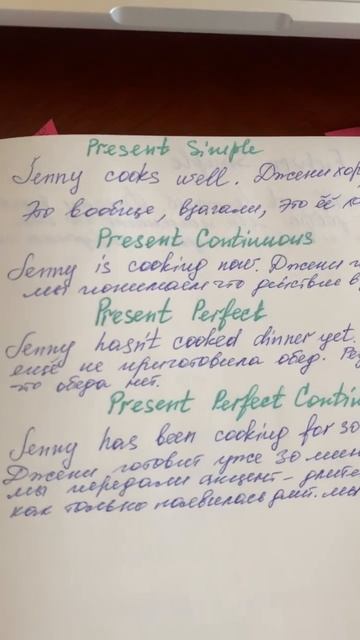 Present Simple
Jenny cooks well. Джени хор
Это вообще, взагали, это её к
Present Continuous
Jenny is cooking now. Джени г
мы понимаем что действие в
Present Perfect
Jenny hasn't cooked dinner yet.
ещё не приготовила обед. Рез
что обеда нет.
Present Perfect Contin
Jenny has been cooking for 30
Джени готовит уже 30 мин
мы передали акцент - длите
как только появилась длит. мы